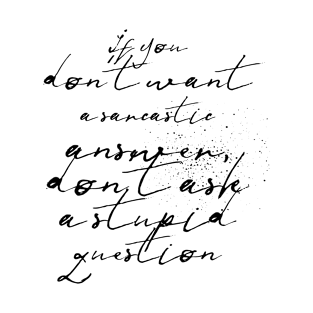 if you
don't want
a sarcastic
answer,
don't ask
a stupid
question